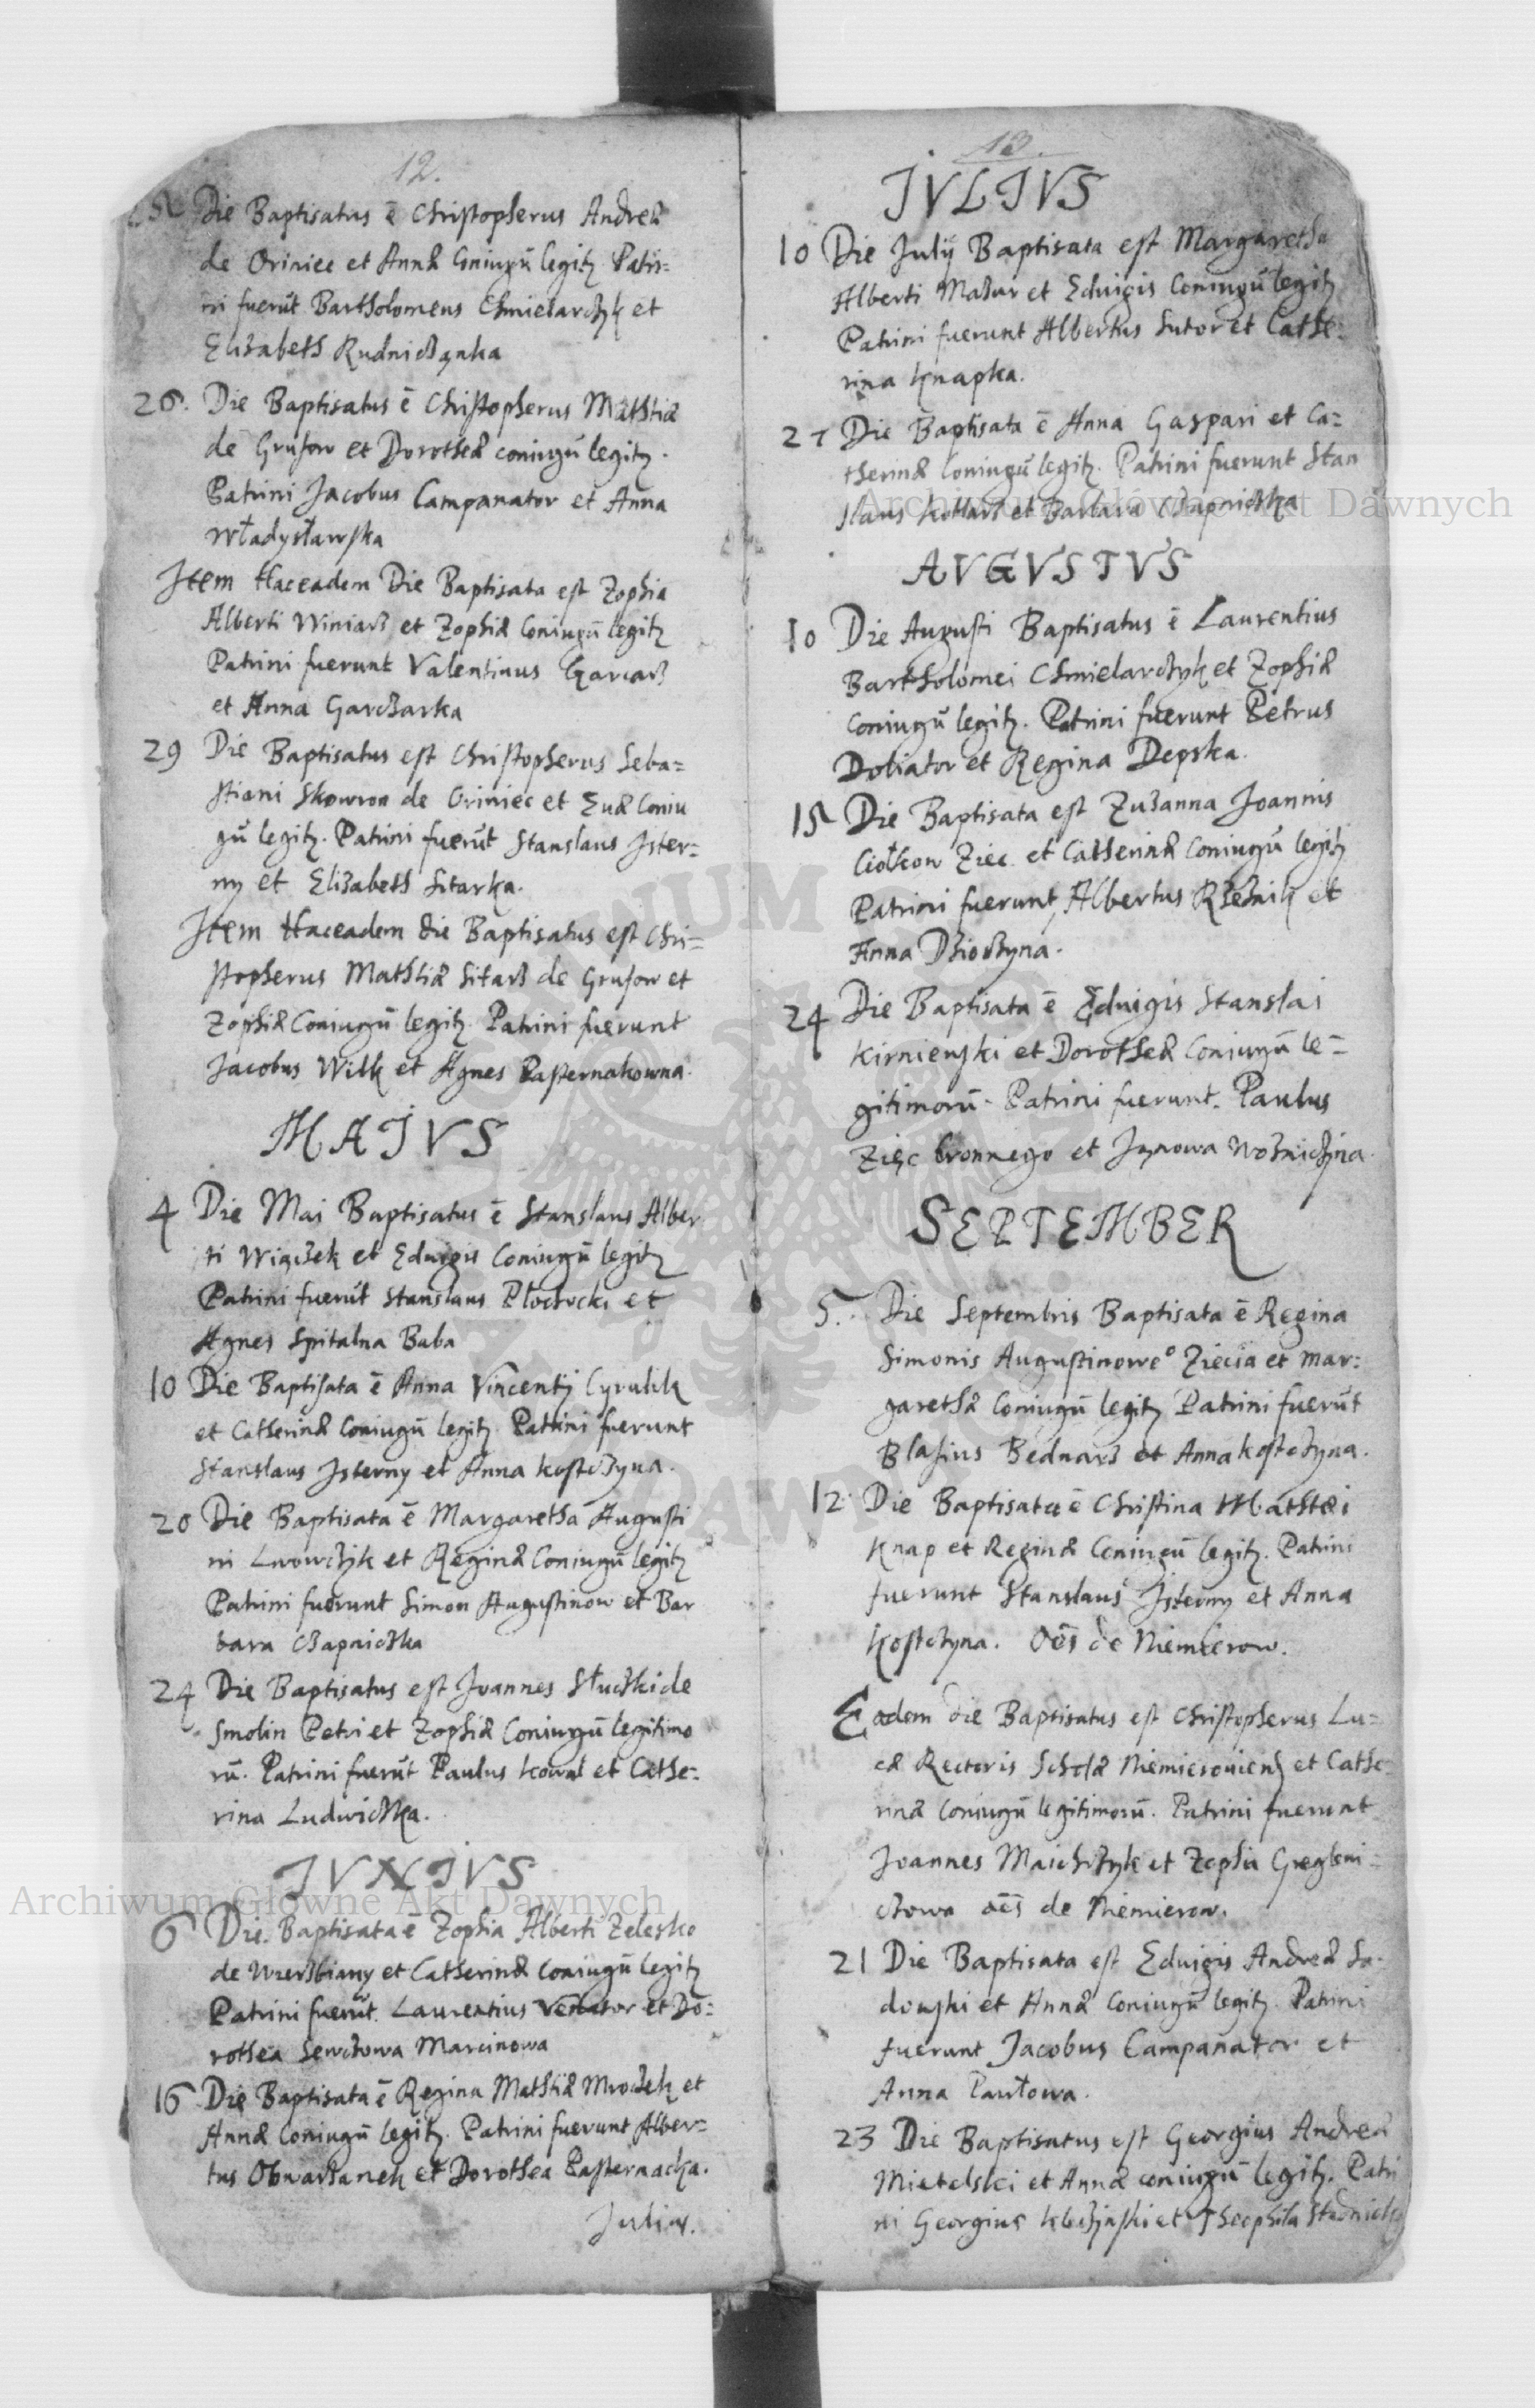 12.
Die Baptisatus ē Christopherus Andreæ
de Oriniec et Annæ Coniugū legitz Patri=
ni fuerūt Bartholomeus Chmielarczyk et
Elizabeth Rudniczanka
26. Die Baptisatus ē Christopherus Mathiæ
de Grusow et Dorotheæ coniugū legitz.
Patrini Jacobus Campanator et Anna
Władysławska
Item Haceadem Die Baptisata est Zophia
Alberti Winiarz et Zophiæ Coniugū legitz
Patrini fuerunt Valentinus Garcarz
et Anna Garczarka
29 Die Baptisatus est Christopherus Seba=
stiani Skowron de Oriniec et Euæ Coniu
gū legitz. Patrini fuerūt Stanslaus Jster=
ny et Elizabeth Sitarka.
Item Haceadem die Baptisatus est Chri=
stopherus Mathiæ Sitarz de Grusow et
Zophiæ Coniugū legitz Patrini fuerunt
Jacobus Wilk et Agnes Pasternakowna.
MAJVS
4 Die Mai Baptisatus ē Stanslaus Alber
ti Wiączek et Eduigis Coniugū legitz
Patrini fuerūt Stanslaus Płochocki et
Agnes Spitalna Baba
10 Die Baptisata ē Anna Vincentij Cyrulik
et Catherinæ Coniugū legitz Patrini fuerunt
Stanslaus Jsterny et Anna Kostczyna.
20 Die Baptisata ē Margaretha Augusti
ni Lwowczyk et Reginæ Coniugū legitz
Patrini fuerunt Simon Augustinow et Bar
bara Czapniczka
24 Die Baptisatus est Joannes Słuczki de
Smolin Petri et Zophiæ Coniugū legitimo
rū. Patrini fuerūt Paulus Kowal et Cathe=
rina Ludwiczka.
JVNJVS
6 Die Baptisata ē Zophia Alberti Zelesko
de Wierzbiany et Catherinæ Coniugū legitz
Patrini fuerūt Laurentius Venator et Do=
rothea Sewczowa Marcinowa
16 Die Baptisata ē Regina Mathiæ Mroczek et
Annæ Coniugū legitz. Patrini fuerunt Alber=
tus Obwarzanek et Dorothea Pasternacka.
Julius.
13.
JVLJVS
10 Die Julij Baptisata est Margaretha
Alberti Mazur et Eduigis Coniugū legitz
Patrini fuerunt Albertus Sutor et Cathe=
rina Knapka.
27 Die Baptisata ē Anna Gaspari et Ca=
therinæ Coniugū legitz. Patrini fuerunt Stan
slaus Kotlarz et Barbara Czapniczka
AVGVSTVS
10 Die Augusti Baptisatus ē Laurentius
Bartholomei Chmielarczyk et Zophiæ
Coniugū legitz. Patrini fuerunt Petrus
Doliator et Regina Depska.
15 Die Baptisata est Zuzanna Joannis
Ciołkow Ziec et Catherinæ Coniugū legitz
Patrini fuerunt Albertus Rzeznik et
Anna Dzioczyna.
24 Die Baptisata ē Eduigis Stanslai
Kirnienski et Dorotheæ Coniugū le=
gitimorū. Patrini fuerunt. Paulus
Zięc bronnego et Wozniczina.
SEPTEMBER
5. Die Septembris Baptisata ē Regina
Simonis Augustinoweo Ziecia et Mar=
garethæ Coniugū legitz Patrini fuerūt
Blasius Bednarz et Anna Kostczyna.
12 Die Baptisata ē Christina Mathæi
Knap et Reginæ Coniugū legitz. Patrini
fuerunt Stanslaus Jsterny et Anna
Kostczyna. Oēs de Niemierow.
Eadem die Baptisatus est Christopherus Lu=
cæ Rectoris Scholæ Niemierouiens et Cathe=
rinæ Coniugū legitimorū. Patrini fuerunt
Joannes Maichrzyk et Zophia
oēs de Niemierow.
21 Die Baptisata est Eduigis Andreæ Sa=
dowski et Annæ Coniugū legitz. Patrini
fuerunt Jacobus Campanator et
Anna Pawłowa.
23 Die Baptisatus est Georgius Andreæ
Mietelski et Annæ coniugū legitz. Patri
ni Georgius et Theophila
Archiwum Główne Akt Dawnych
Archiwum Główne Akt Dawnych